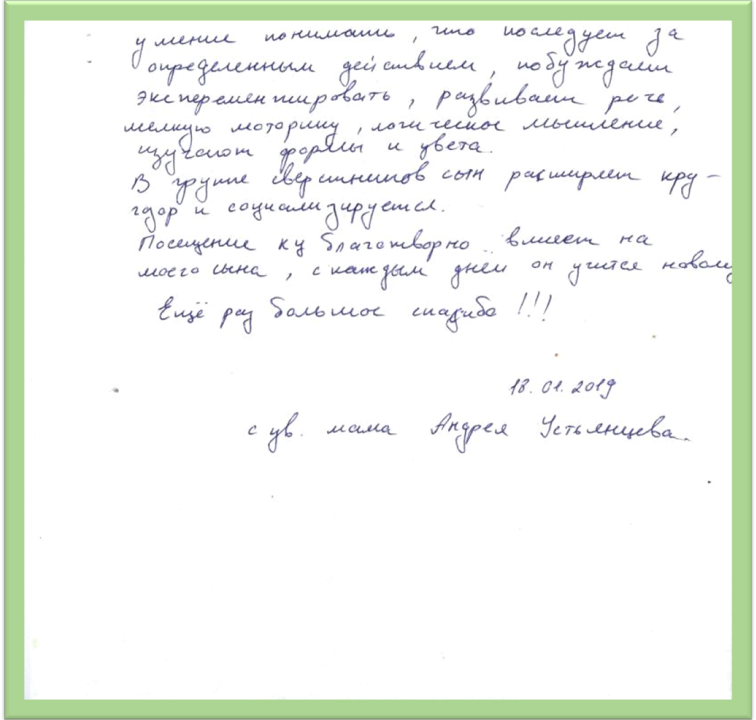 умение понимать, что последует за
определенным действием, побуждают
эксперементировать, развивают речь,
мелкую моторику, логическое мышление,
изучают формы и цвета.
В группе сверстников сын расширяет кру-
гозор и социализируется.
Посещение КЦ благотворно влияет на
моего сына, с каждым днём он учится новому
Ещё раз большое спасибо!!!
18.01.2019
с ув. мама Андрея Устьянцева.